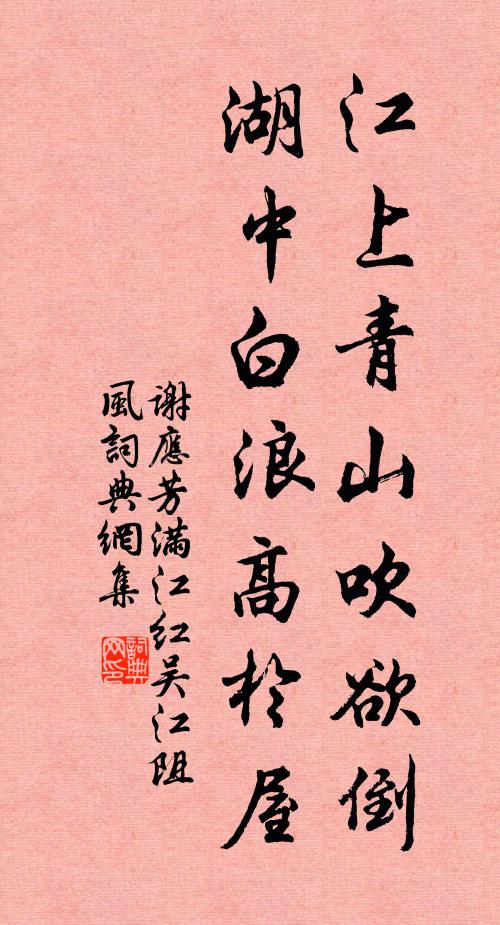 江上青山吹欲倒
湖中白浪高於屋
謝應芳滿江红吴江阻
風詞典網集
詞典
网印